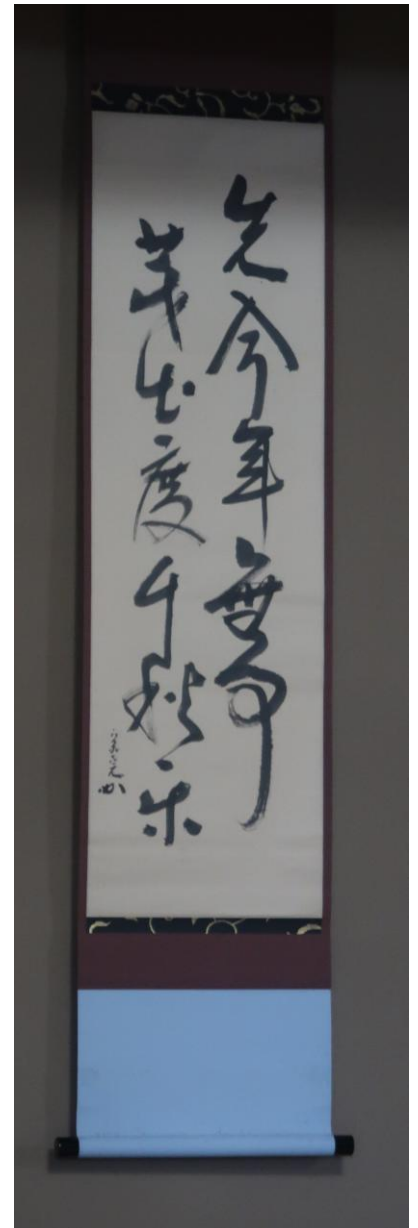 先今年無事
芽出度千秋楽